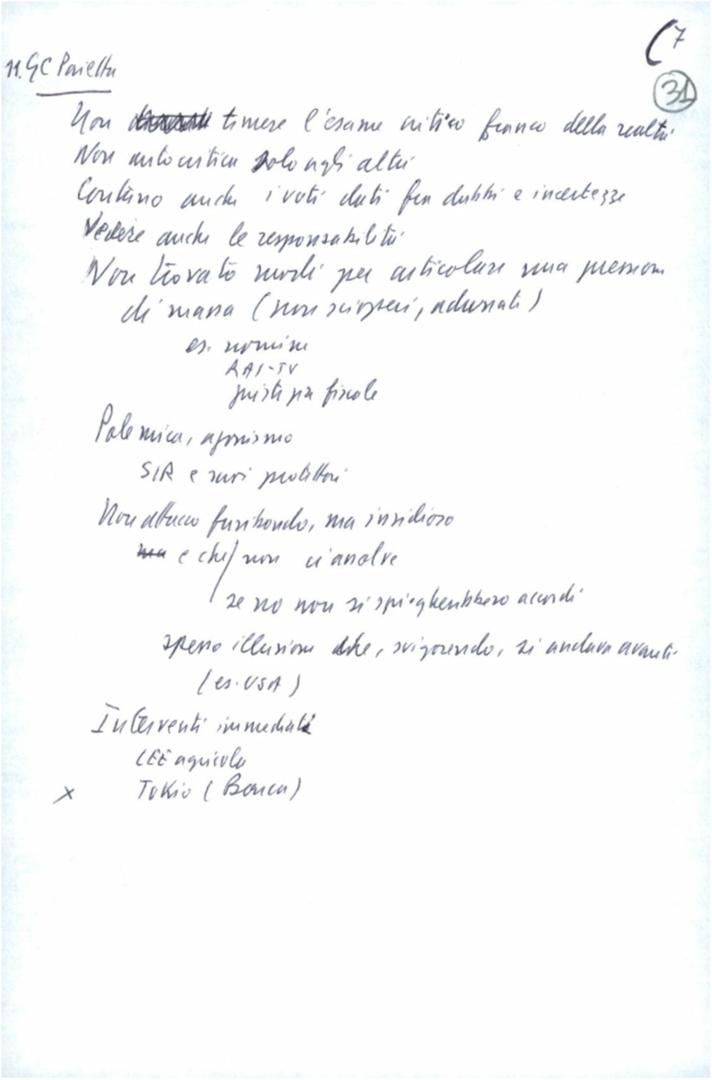 (7
31
11. GC Pajetta
Non temere l'esame critico franco della realtà
Non autocritica solo agli altri
Contano anche i voti dati fra dubbi e incertezze
Vedere anche le responsabilità
Non trovato modi per articolare una pressione
di massa (non scioperi, adunate)
es. nomine
RAI-TV
giustizia fiscale
Polemica, agonismo
SIR e suoi protettori
Non attacco furibondo, ma insidioso
e che non ci assolve
se no non si spiegherebbero accordi
spesso illusione che, svigorendo, si andava avanti
(es. USA)
Interventi immediati
CEE agricola
x Tokio (Banca)